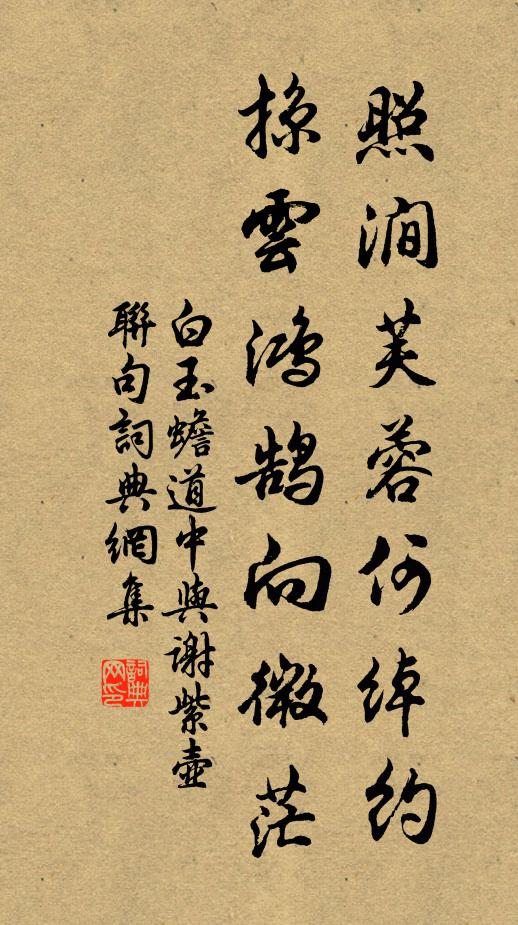 照澗芙蓉何綽約
掠雲鴻鵠向微茫
白玉蟾道中與謝紫壺
聯句詞典網集
詞典网印